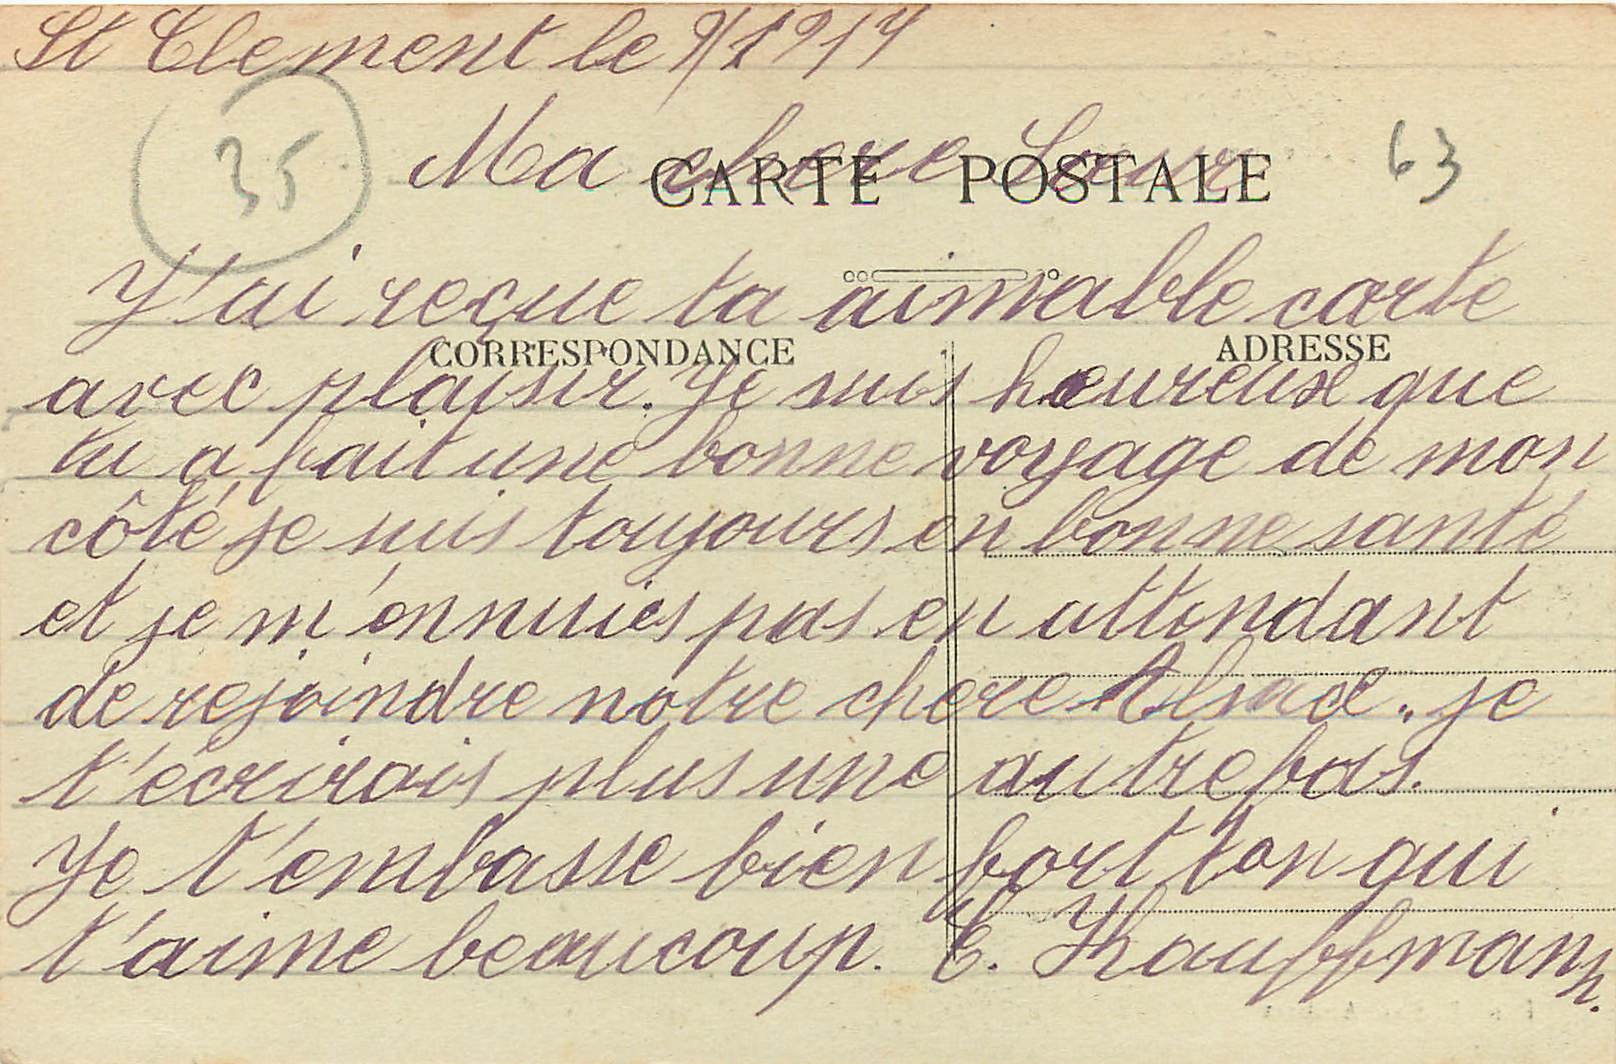 St Clement le 9/1914
35
63
Ma chere Soeur
CARTE POSTALE
J'ai reçue ta aimable carte
CORRESPONDANCE
ADRESSE
avec plaisir. Je suis heureux que
tu a fait une bonne voyage de mon
côté je suis toujours en bonne santé
et je m'ennuies pas en attendant
de rejoindre notre chere Alsace. je
t'écrirais plus une autrefois.
Je t'embasse bien fort ton qui
t'aime beaucoup. E. Khauffmann.